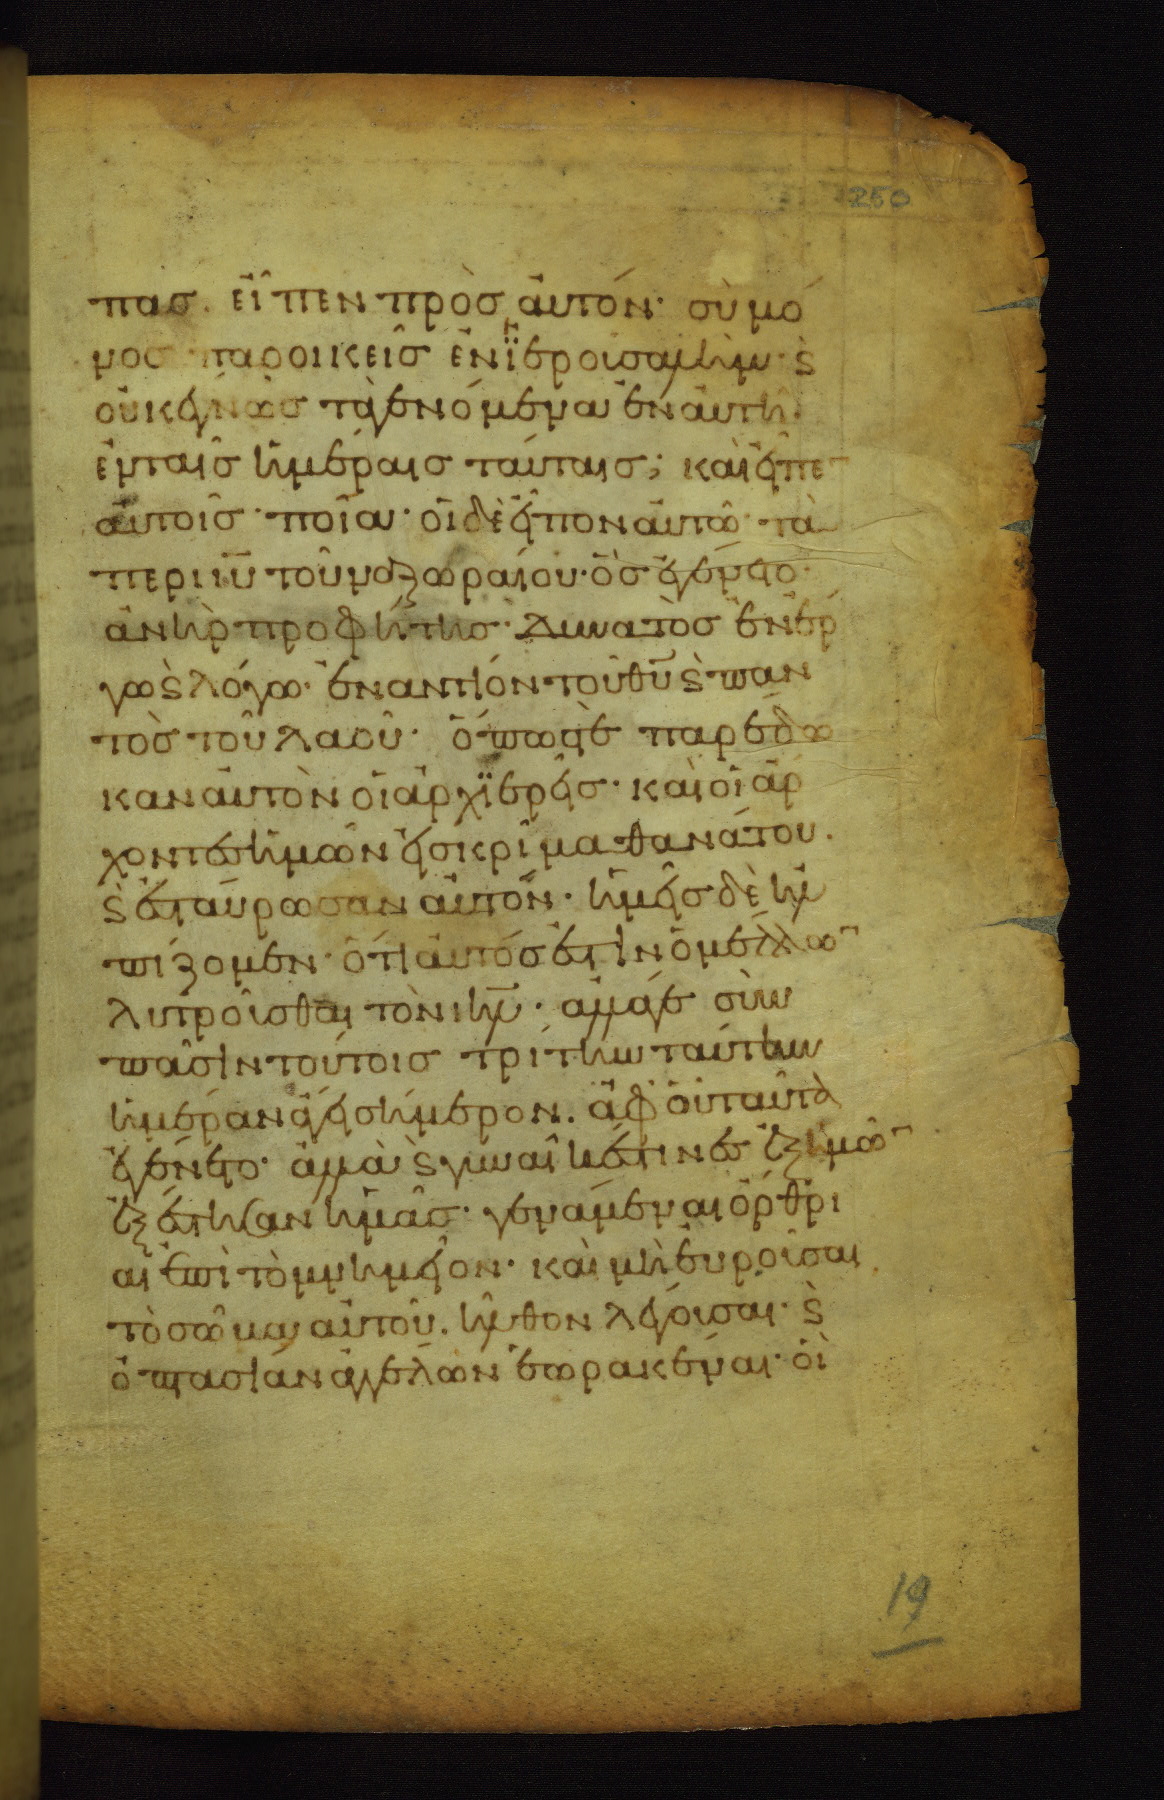 250
πας. εἶπεν πρὸς αὐτόν· σὺ μό
νος παροικεῖς ἐν ϊερουσαλὴμ· ϗ
οὐκ ἔγνως τὰ γενόμενα ἐν αὐτῆ
ἐν ταῖς ἡμέραις ταύταις; καὶ εἶπε
αὐτοῖς· ποῖα· οἱ δὲ εἶπον αὐτῶ· τὰ
περι ιυ τοῦ ναζωραίου· ὃς ἐγένετο
ἀνὴρ προφήτης· δυνατὸς ἐν ἔρ
γω ϗ λόγω· ἐναντίον τοῦ θυ ϗ παν
τὸς τοῦ λαοῦ· ὅπως τὲ παρέδω
καν αὐτὸν οἱ ἀρχϊερεῖς· καὶ οἱ ἄρ
χοντες ἡμῶν εἰς κρῖμα θανάτου.
ϗ ἐσταύρωσαν αὐτὸν· ἡμεῖς δὲ ἠλ
πίζομεν· ὅτι αὐτός ἐστιν ὁ μέλλω
λυτροῦσθαι τὸν ιηλ· ἀλλάγε σὺν
πᾶσιν τούτοις τρίτην ταύτην
ἡμέραν ἄγει σήμερον. ἀφ οὗ ταῦτα
ἐγένετο· ἀλλὰ ϗ γυναῖκές τινες ἐξ ἡμῶ
ἐξέστησαν ἡμᾶς· γενάμεναι ὄρθρι
αι ἐπὶ τὸ μνημεῖον· καὶ μὴ εὑροῦσαι
τὸ σῶμα αὐτοῦ. ἦλθον λέγουσαι· ϗ
ὀπτασίαν ἀγγέλων ἑωρακέναι· οἳ
19